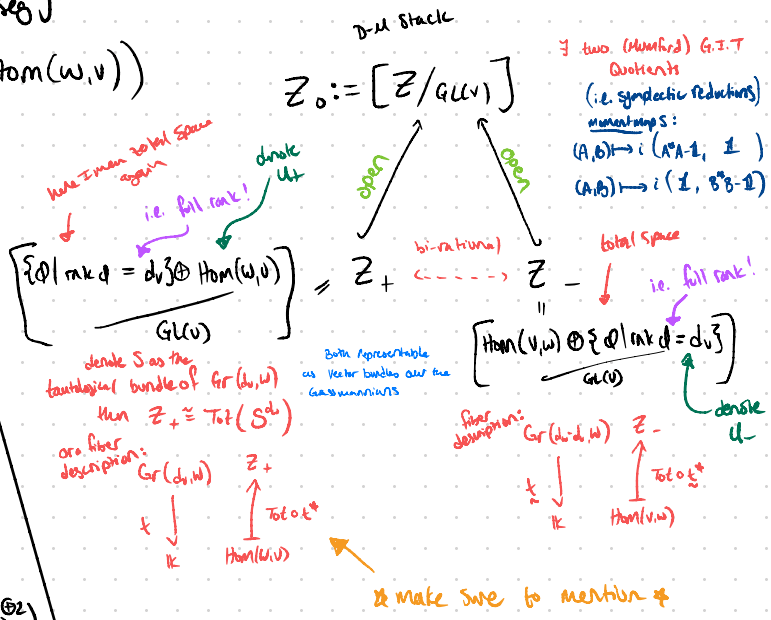 seg J
Hom(W,V)))
D-M Stack
Z₀ := [Z/GL(V)]
∃ two (Mumford) G.I.T
Quotients
(i.e. symplectic reductions)
moment maps:
(A,B) ↦ i (A*A-𝟙, 𝟙)
(A,B) ↦ i (𝟙, B*B-𝟙)
here I mean total space
again
i.e. full rank!
denote
U₊
open
open
[{Φ| rnk Φ = dᵥ}⊕ Hom(W,V) / GL(V)] = Z₊
bi-rational
Z₋
=
total space
i.e. full rank!
[Hom(V,W) ⊕{Φ| rank Φ = dᵥ} / GL(V)]
denote
U₋
denote S as the
tautological bundle of Gr(dᵥ,W)
then Z₊ ≅ Tot(S^dᵥ)
Both representable
as vector bundles over the
Grassmannians
or a fiber
description:
Gr(dᵥ,W)
t
𝕜
Z₊
Tot ∘ t*
Hom(W,V)
fiber
description:
Z₋
t
𝕜
Tot ∘ t*
Hom(V,W)
☆ make sure to mention ☆
⊕2)